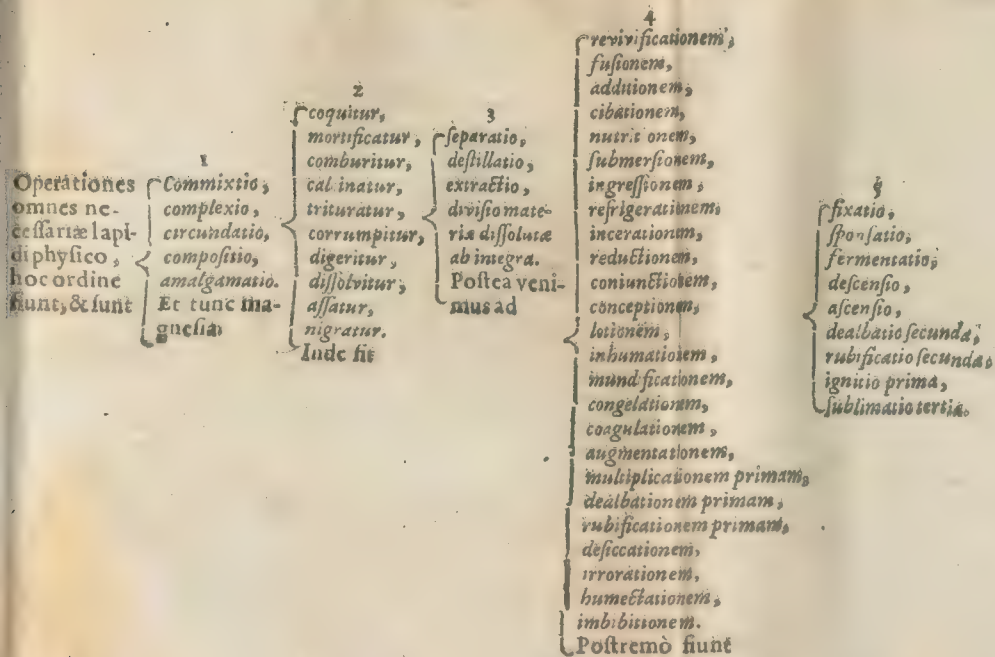 Operationes
omnes ne-
cessariæ lapi-
di physico,
hoc ordine
fiunt, & sunt
1
Commixtio,
complexio,
circundatio,
compositio,
amalgamatio.
Et tunc ma-
gnesia
2
coquitur,
mortificatur,
comburitur,
calcinatur,
trituratur,
corrumpitur,
digeritur,
dissolvitur,
assatur,
nigratur.
Inde fit
3
separatio,
destillatio,
extractio,
divisio mate-
riæ dissolutæ
ab integra.
Postea veni-
mus ad
4
revivificationem,
fusionem,
additionem,
cibationem,
nutritionem,
submersionem,
ingressionem,
refrigerationem,
incerationem,
reductionem,
coniunctionem,
conceptionem,
lotionem,
inhumationem,
mundificationem,
congelationem,
coagulationem,
augmentationem,
multiplicationem primam,
dealbationem primam,
rubificationem primam,
desiccationem,
irrorationem,
humectationem,
imbibitionem.
Postremò fiunt
5
fixatio,
sponsatio,
fermentatio,
descensio,
ascensio,
dealbatio secunda,
rubificatio secunda,
ignitio prima,
sublimatio tertia.